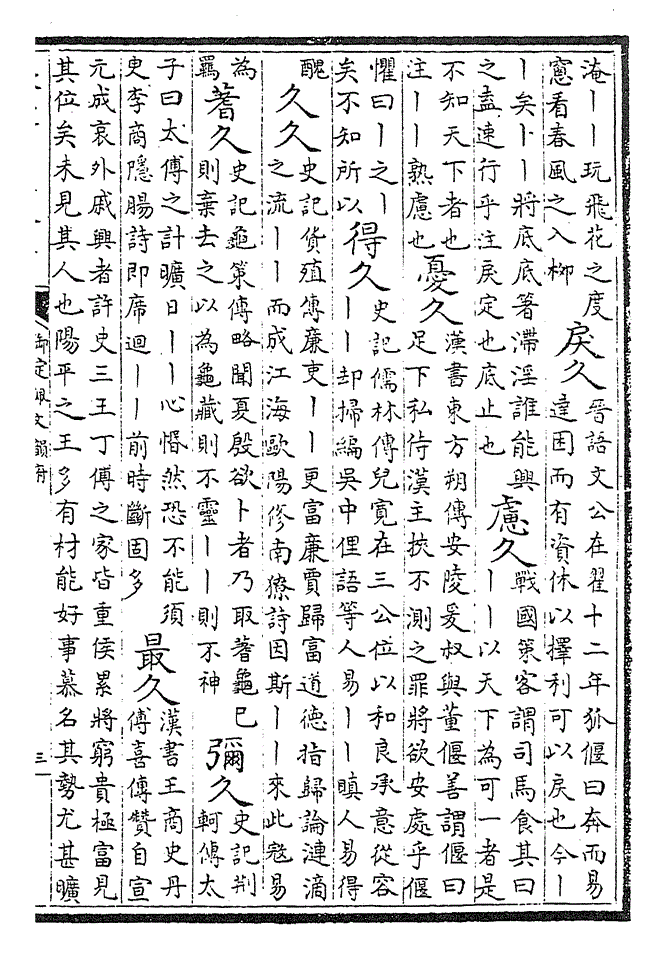 淹丨丨玩飛花之度
窻看春風之入栁
戾久
晉語文公在翟十二年狐偃曰奔而易
達困而有資休以擇利可以戾也今丨
丨矣丨丨將底底著滯淫誰能興
之盍速行乎注戾定也底止也
慮久
戰國策客謂司馬食其曰
丨丨以天下為可一者是
不知天下者也
注丨丨熟慮也
憂久
漢書東方朔傳安陵爰叔與董偃善謂偃曰
足下私侍漢主挾不測之罪將欲安處乎偃
懼曰丨之丨
矣不知所以
得久
史記儒林傳兒寛在三公位以和良承意從容
丨丨却掃編吳中俚語等人易丨丨瞋人易得
醜
久久
史記貨殖傳廉吏丨丨更富廉賈歸富道德指歸論漣滴
之流丨丨而成江海歐陽修南獠詩因斯丨丨來此冦易
為
羈
蓍久
史記龜策傳略聞夏殷欲卜者乃取蓍龜已
則棄去之以為龜藏則不靈丨丨則不神
彌久
史記荆
軻傳太
子曰太傅之計曠日丨丨心惛然恐不能須
史李商隱腸詩即席迴丨丨前時斷固多
最久
漢書王商史丹
傅喜傳贊自宣
元成哀外戚興者許史三王丁傅之家皆重侯累將窮貴極富見
其位矣未見其人也陽平之王多有材能好事慕名其勢尤甚曠
御定佩文韻府
三